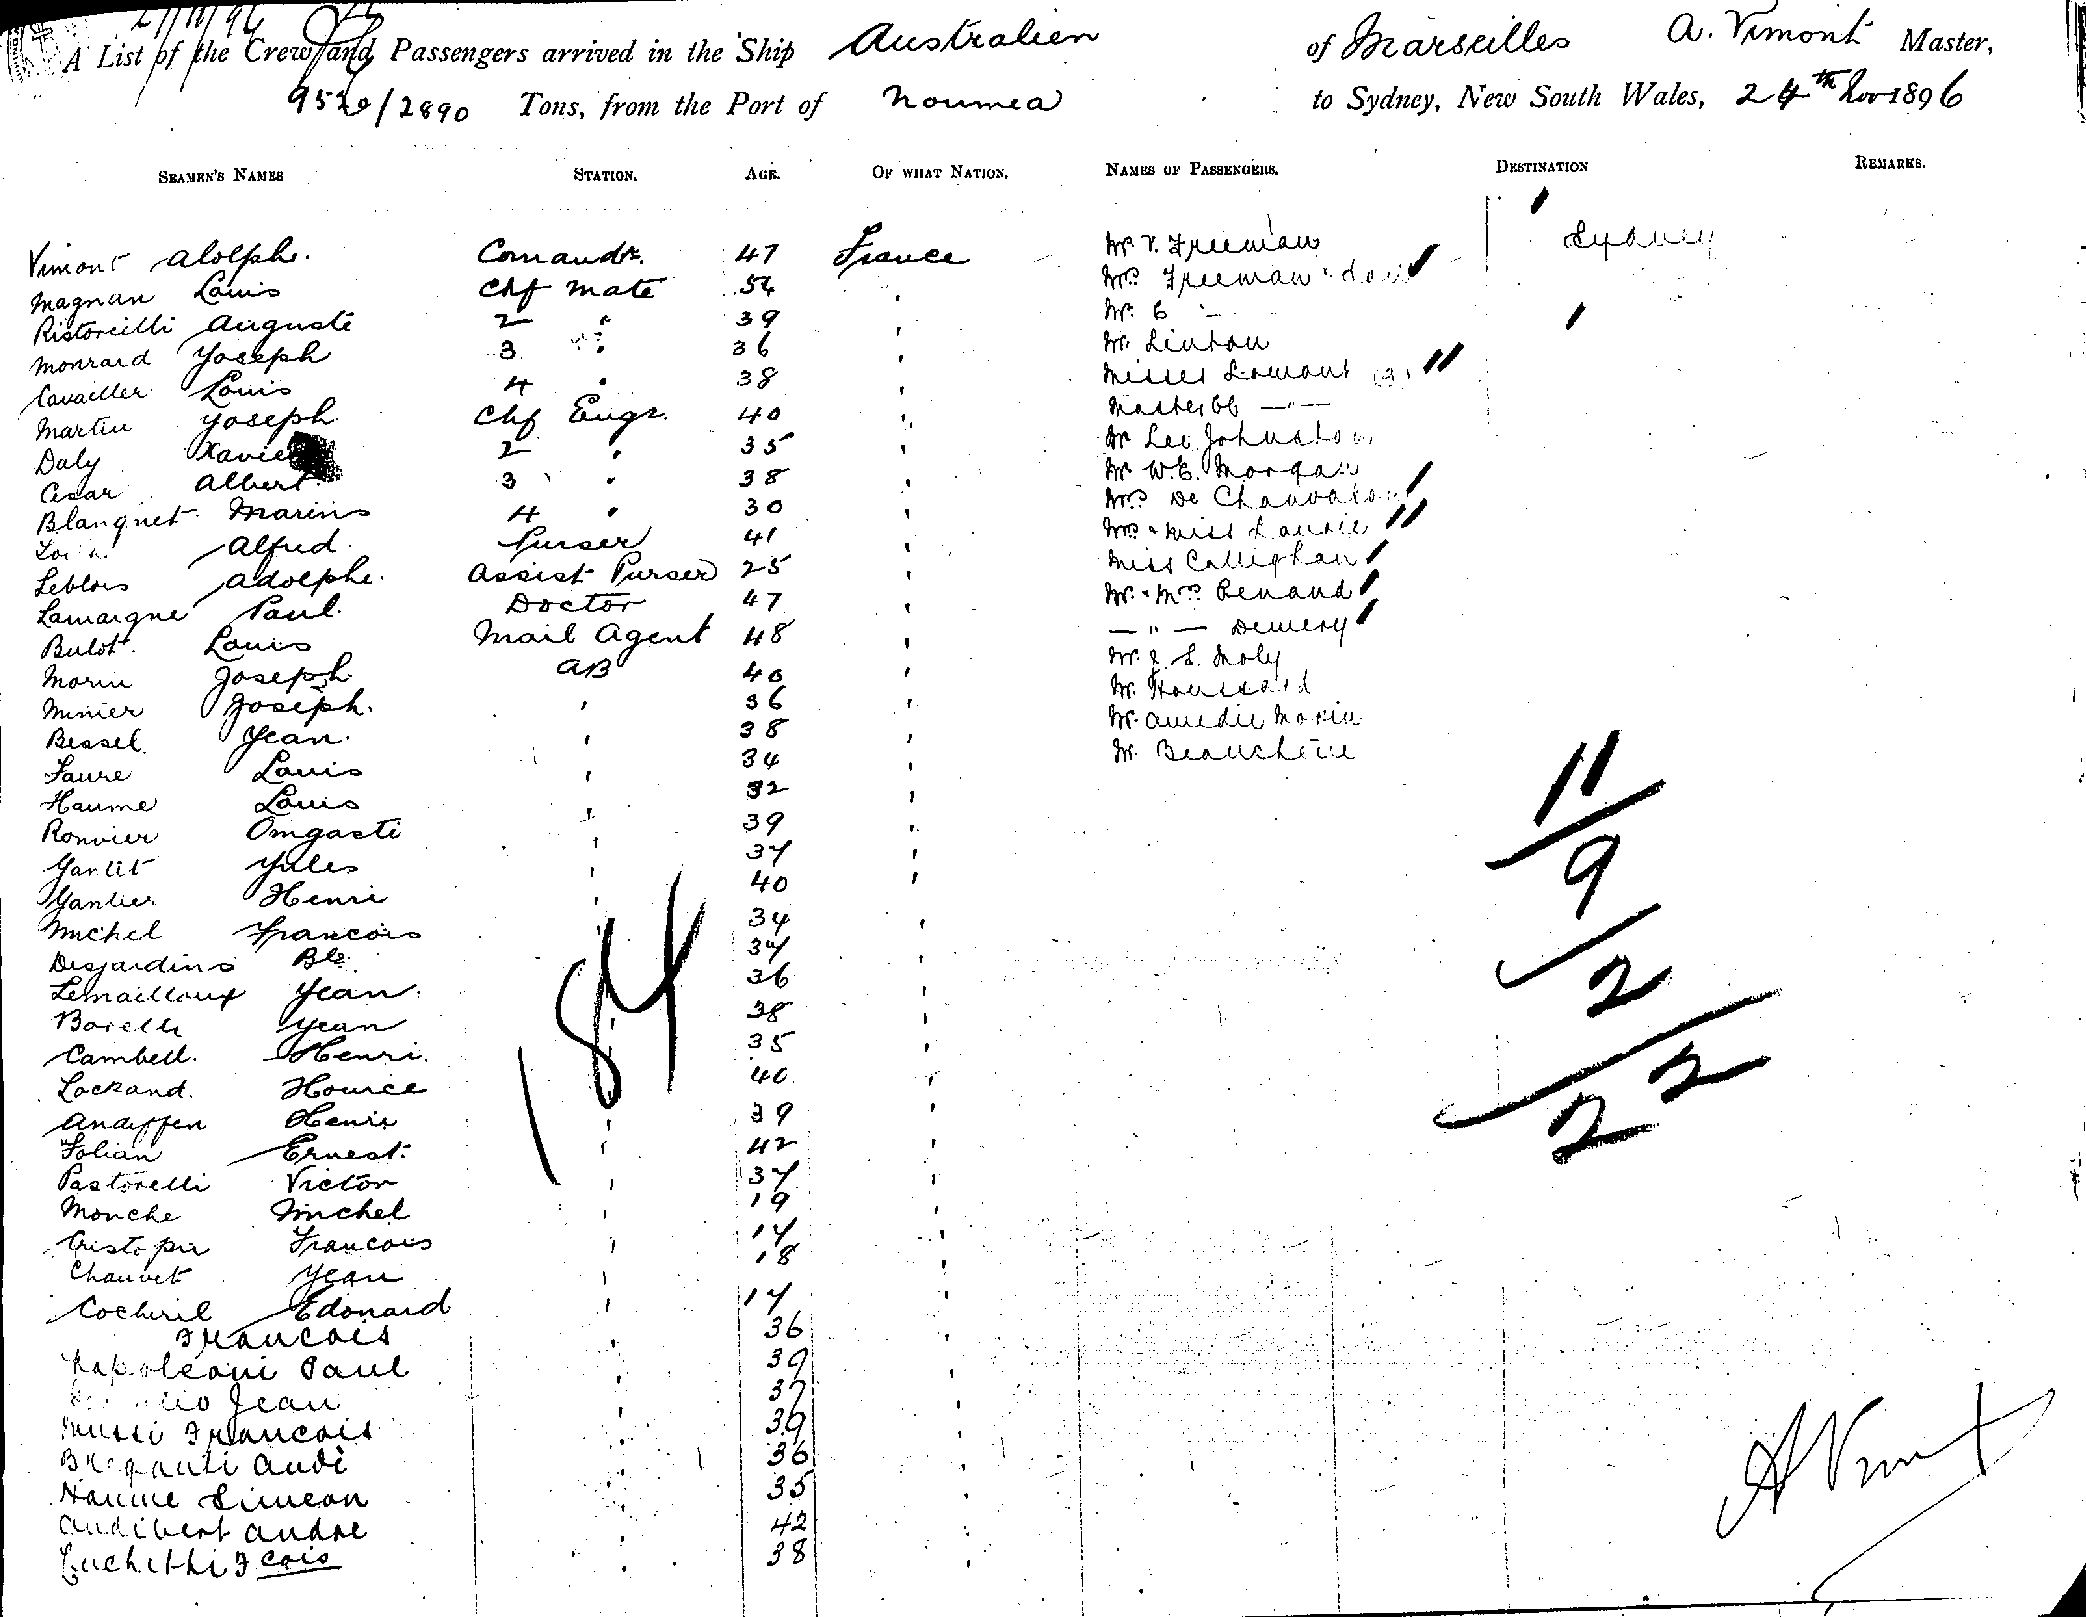 27/11/96
A List of the Crew and Passengers arrived in the Ship Australien of Marseilles A. Vimont Master,
9520/2890 Tons, from the Port of Noumea to Sydney, New South Wales, 24th Nov 1896
SEAMEN'S NAMES STATION. AGE. OF WHAT NATION. NAMES OF PASSENGERS. DESTINATION REMARKS.
Vimont Adolphe. Comandr. 47 France Mr V. Freeman Sydney
Magnan Louis Chf Mate 54 Mrs Freeman
Ristorcelli Auguste 2 " 39 Mr. C —
Monrard Joseph 3 " 36 Mr Linton
Cavailler Louis 4 " 38 Misses Lomont
Martin Joseph Chf Engr. 40 Master — " —
Daly Xavier 2 " 35 Mr Leo Johnston
Cesar Albert 3 " 38 Mr W.E. Morgan
Blanquet Marins 4 " 30 Mrs De Chauvalon
Alfred Purser 41 Mrs & Miss Laurie
Leblois Adolphe. Assist Purser 25 Miss Callighan
Lamargne Paul Doctor 47 Mr. & Mrs Renaud
Bulot Louis Mail Agent 48 — " — Demery
Morin Joseph AB 40 Mr. & S. Moly
Minier Joseph. 36 Mr. Houssard
Bessel Jean. 38 Mr. Amedie Morin
Faure Louis 34 Mr. Beauchene
Haume Louis 32
Ronvier Omgaste 39
Jules 37
Henri 40
Michel Francois 34
Desjardins Bte 37
Lemailloux Jean 36
Borelli Jean 38
Cambell. Henri. 35
Lockand. Hource 40
Andeffen Henri 39
Folian Ernest. 42
Pastorelli Victor 37
Monche Michel 19
Francois 17
Chauvet Jean 18
Cocheril Edouard 17
Francois 36
Napoleoni Paul 39
Jean 37
Mussi Francois 39
36
Haume Simeon 35
Audibert Andre 42
Luchethi Fcois 38
184
11
9
2
2
2
A Vimont